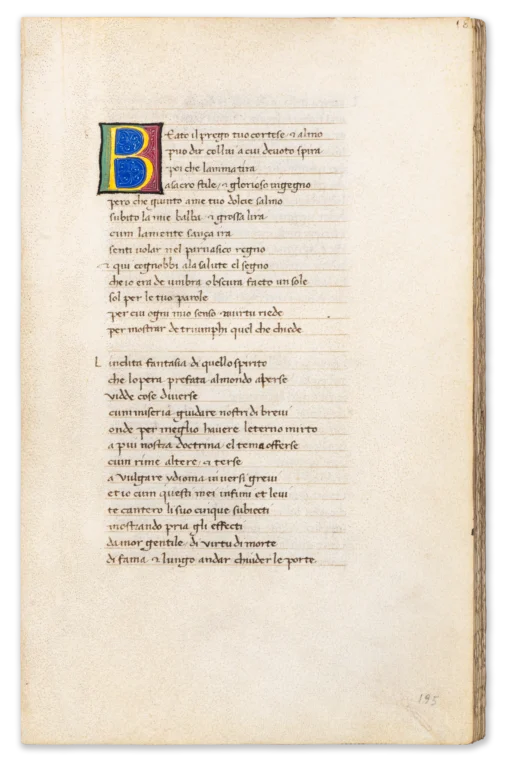 BEato il prego tuo cortese · & almo
può dir collui a cui devoto spira
poi che lamma tira
a sacro stile · & glorioso ingegno
pero che giunto a me tuo dolcie salmo
subito la mie balba · & grossa lira
cum la mente sança ira
senti volar nel parnasico regno
& qui cognobbi ala salute el segno
che io era de umbra obscura facto un sole
sol per le tuo parole
per cui ogni mio senso & virtu riede
per mostrar de triumphi quel che chiede
L inclita fantasia di quello spirito
che lopera prefata almondo aperse
vidde cose diverse
cum miseria guidare nostri di brevi
onde per meglio havere leterno mirto
a pui nostra doctrina · el tema offerse
cum rime altere · & terse
a vulgare ydioma in versi grevi
et io cum questi mei infimi et levi
te cantero li suo cinque subiecti
mostrando pria gli effecti
damor gentile · di virtu di morte
di fama · & lungo andar chiuder le porte
195